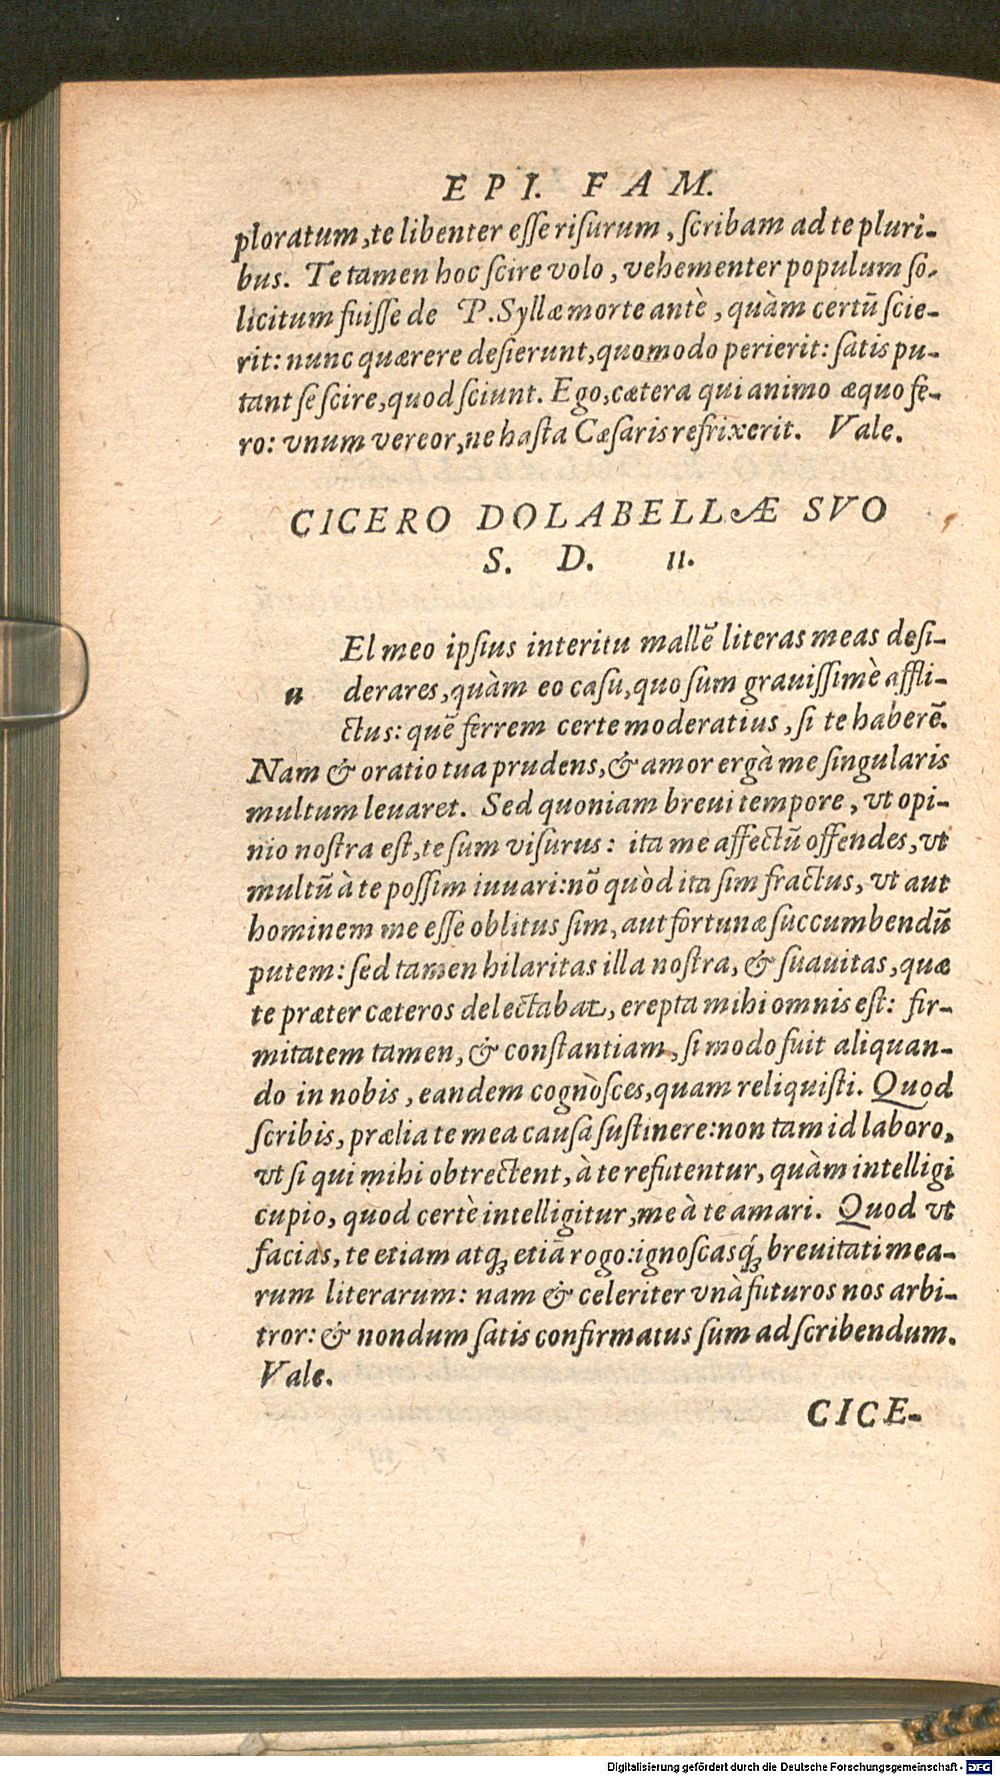 EPI. FAM.
ploratum, te libenter eſſe riſurum, ſcribam ad te pluri-
bus. Te tamen hoc ſcire volo, vehementer populum ſo-
licitum fuiſſe de P. Syllæ morte antè, quàm certũ ſcie-
rit: nunc quærere deſierunt, quomodo perierit: ſatis pu-
tant ſe ſcire, quod ſciunt. Ego, cætera qui animo æquo fe-
ro: vnum vereor, ne haſta Cæſaris refrixerit. Vale.
CICERO DOLABELLÆ SVO
S. D. II.
El meo ipſius interitu mallẽ literas meas deſi-
u derares, quàm eo caſu, quo ſum grauiſſimè affli-
ctus: quẽ ferrem certe moderatius, ſi te haberẽ.
Nam & oratio tua prudens, & amor ergà me ſingularis
multum leuaret. Sed quoniam breui tempore, vt opi-
nio noſtra eſt, te ſum viſurus: ita me affectũ offendes, vt
multũ à te poſſim iuuari: nõ quòd ita ſim fractus, vt aut
hominem me eſſe oblitus ſim, aut fortunæ ſuccumbendũ
putem: ſed tamen hilaritas illa noſtra, & ſuauitas, quæ
te præter cæteros delectabat, erepta mihi omnis eſt: fir-
mitatem tamen, & conſtantiam, ſi modo fuit aliquan-
do in nobis, eandem cognòſces, quam reliquiſti. Quod
ſcribis, prælia te mea cauſa ſuſtinere: non tam id laboro,
vt ſi qui mihi obtrectent, à te refutentur, quàm intelligi
cupio, quod certè intelligitur, me à te amari. Quod vt
facias, te etiam atq; etiã rogo: ignoſcasq́; breuitati mea-
rum literarum: nam & celeriter vnà futuros nos arbi-
tror: & nondum ſatis confirmatus ſum ad ſcribendum.
Vale.
CICE-
Digitalisierung gefördert durch die Deutsche Forschungsgemeinschaft - DFG